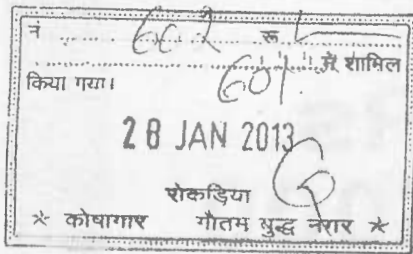 नं 602 रु
601 में शामिल
किया गया।
28 JAN 2013
रोकडिया
* कोषागार गौतम बुद्ध नगर *